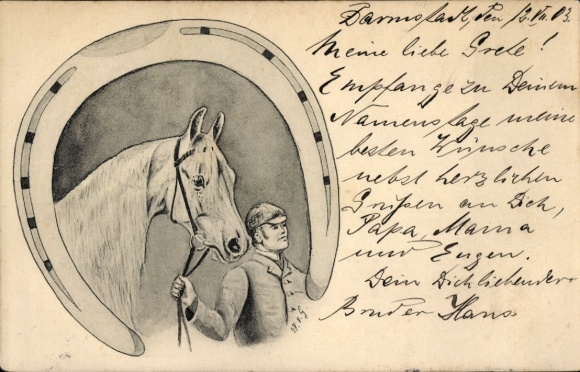 Darmstadt, den 12. VII. 03.
Meine liebe Grete!
Empfange zu Deinem
Namenstage meine
besten Wünsche
nebst herzlichen
Grüßen an Dich,
Papa, Mama
und Eugen.
Dein Dichliebender
Bruder Hans